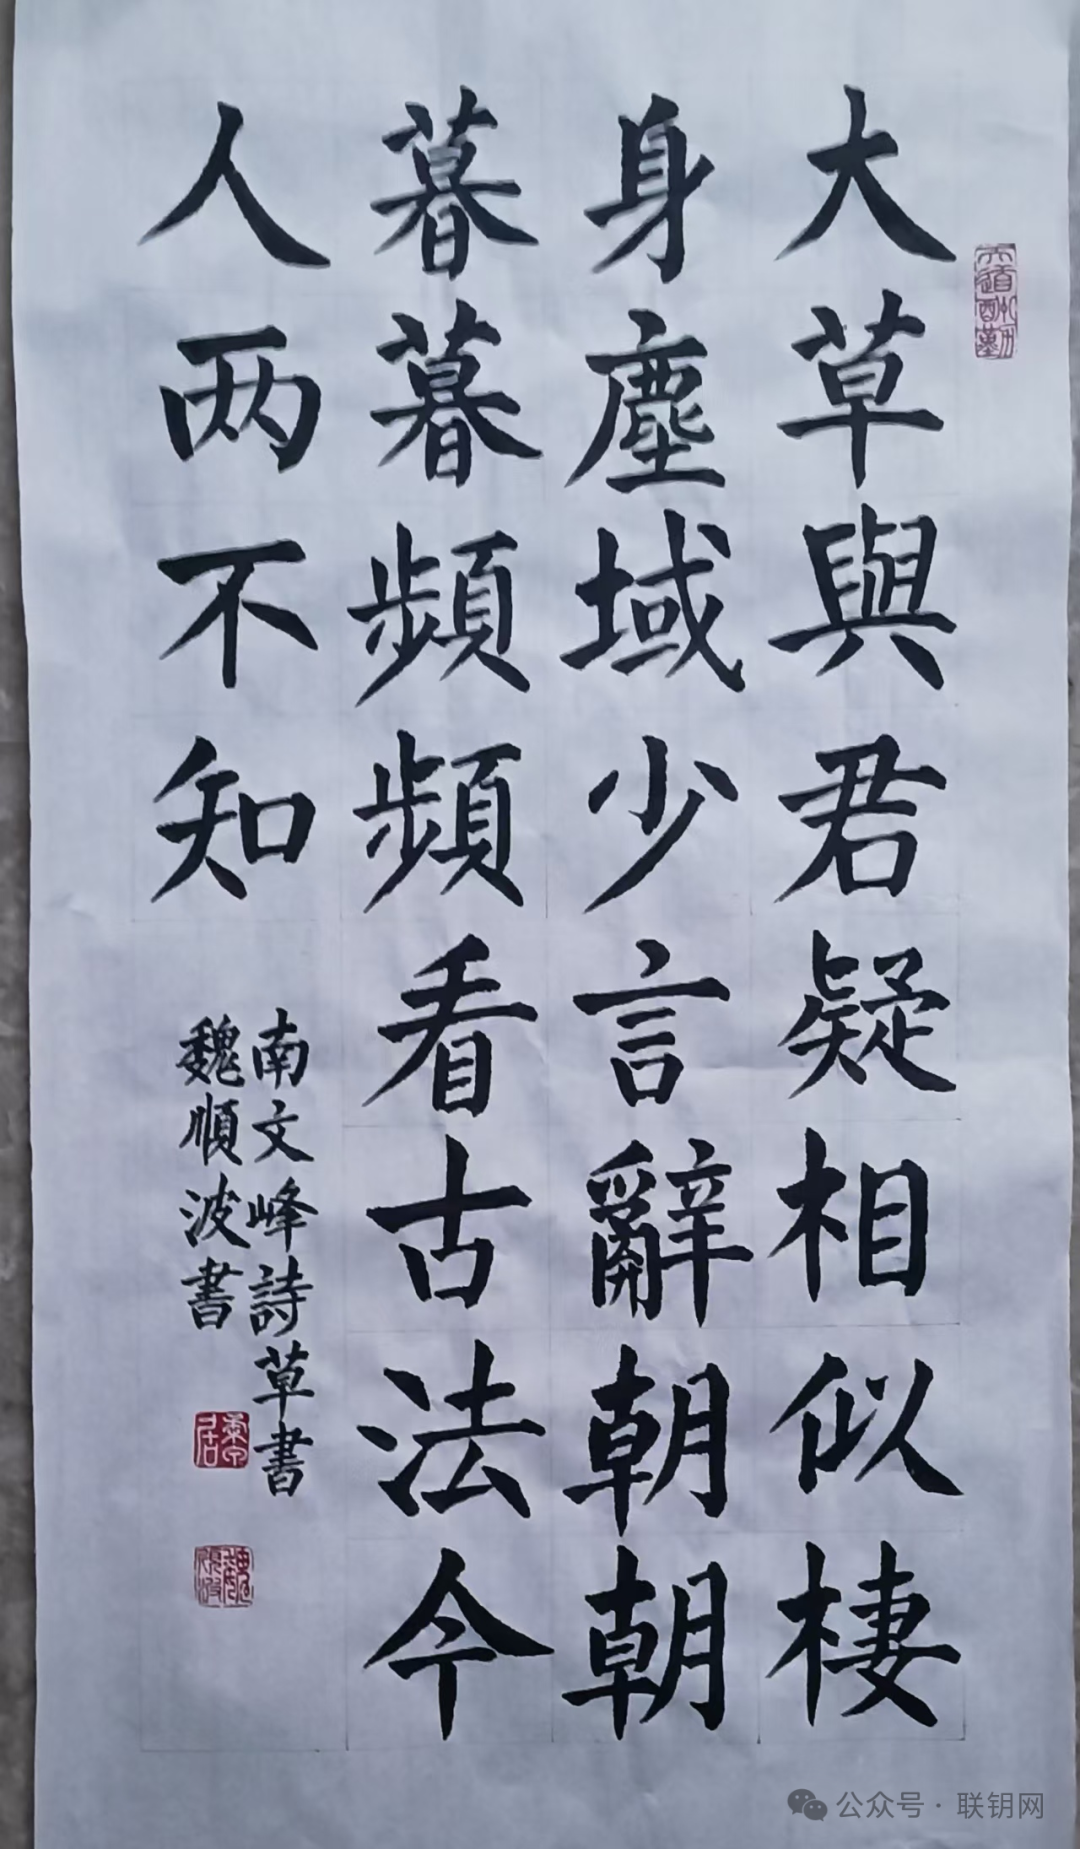 大草與君疑相似棲
身塵域少言辭朝朝
暮暮頻頻看古法今
人两不知
南文峰詩草書
魏順波書
公众号 · 联钥网